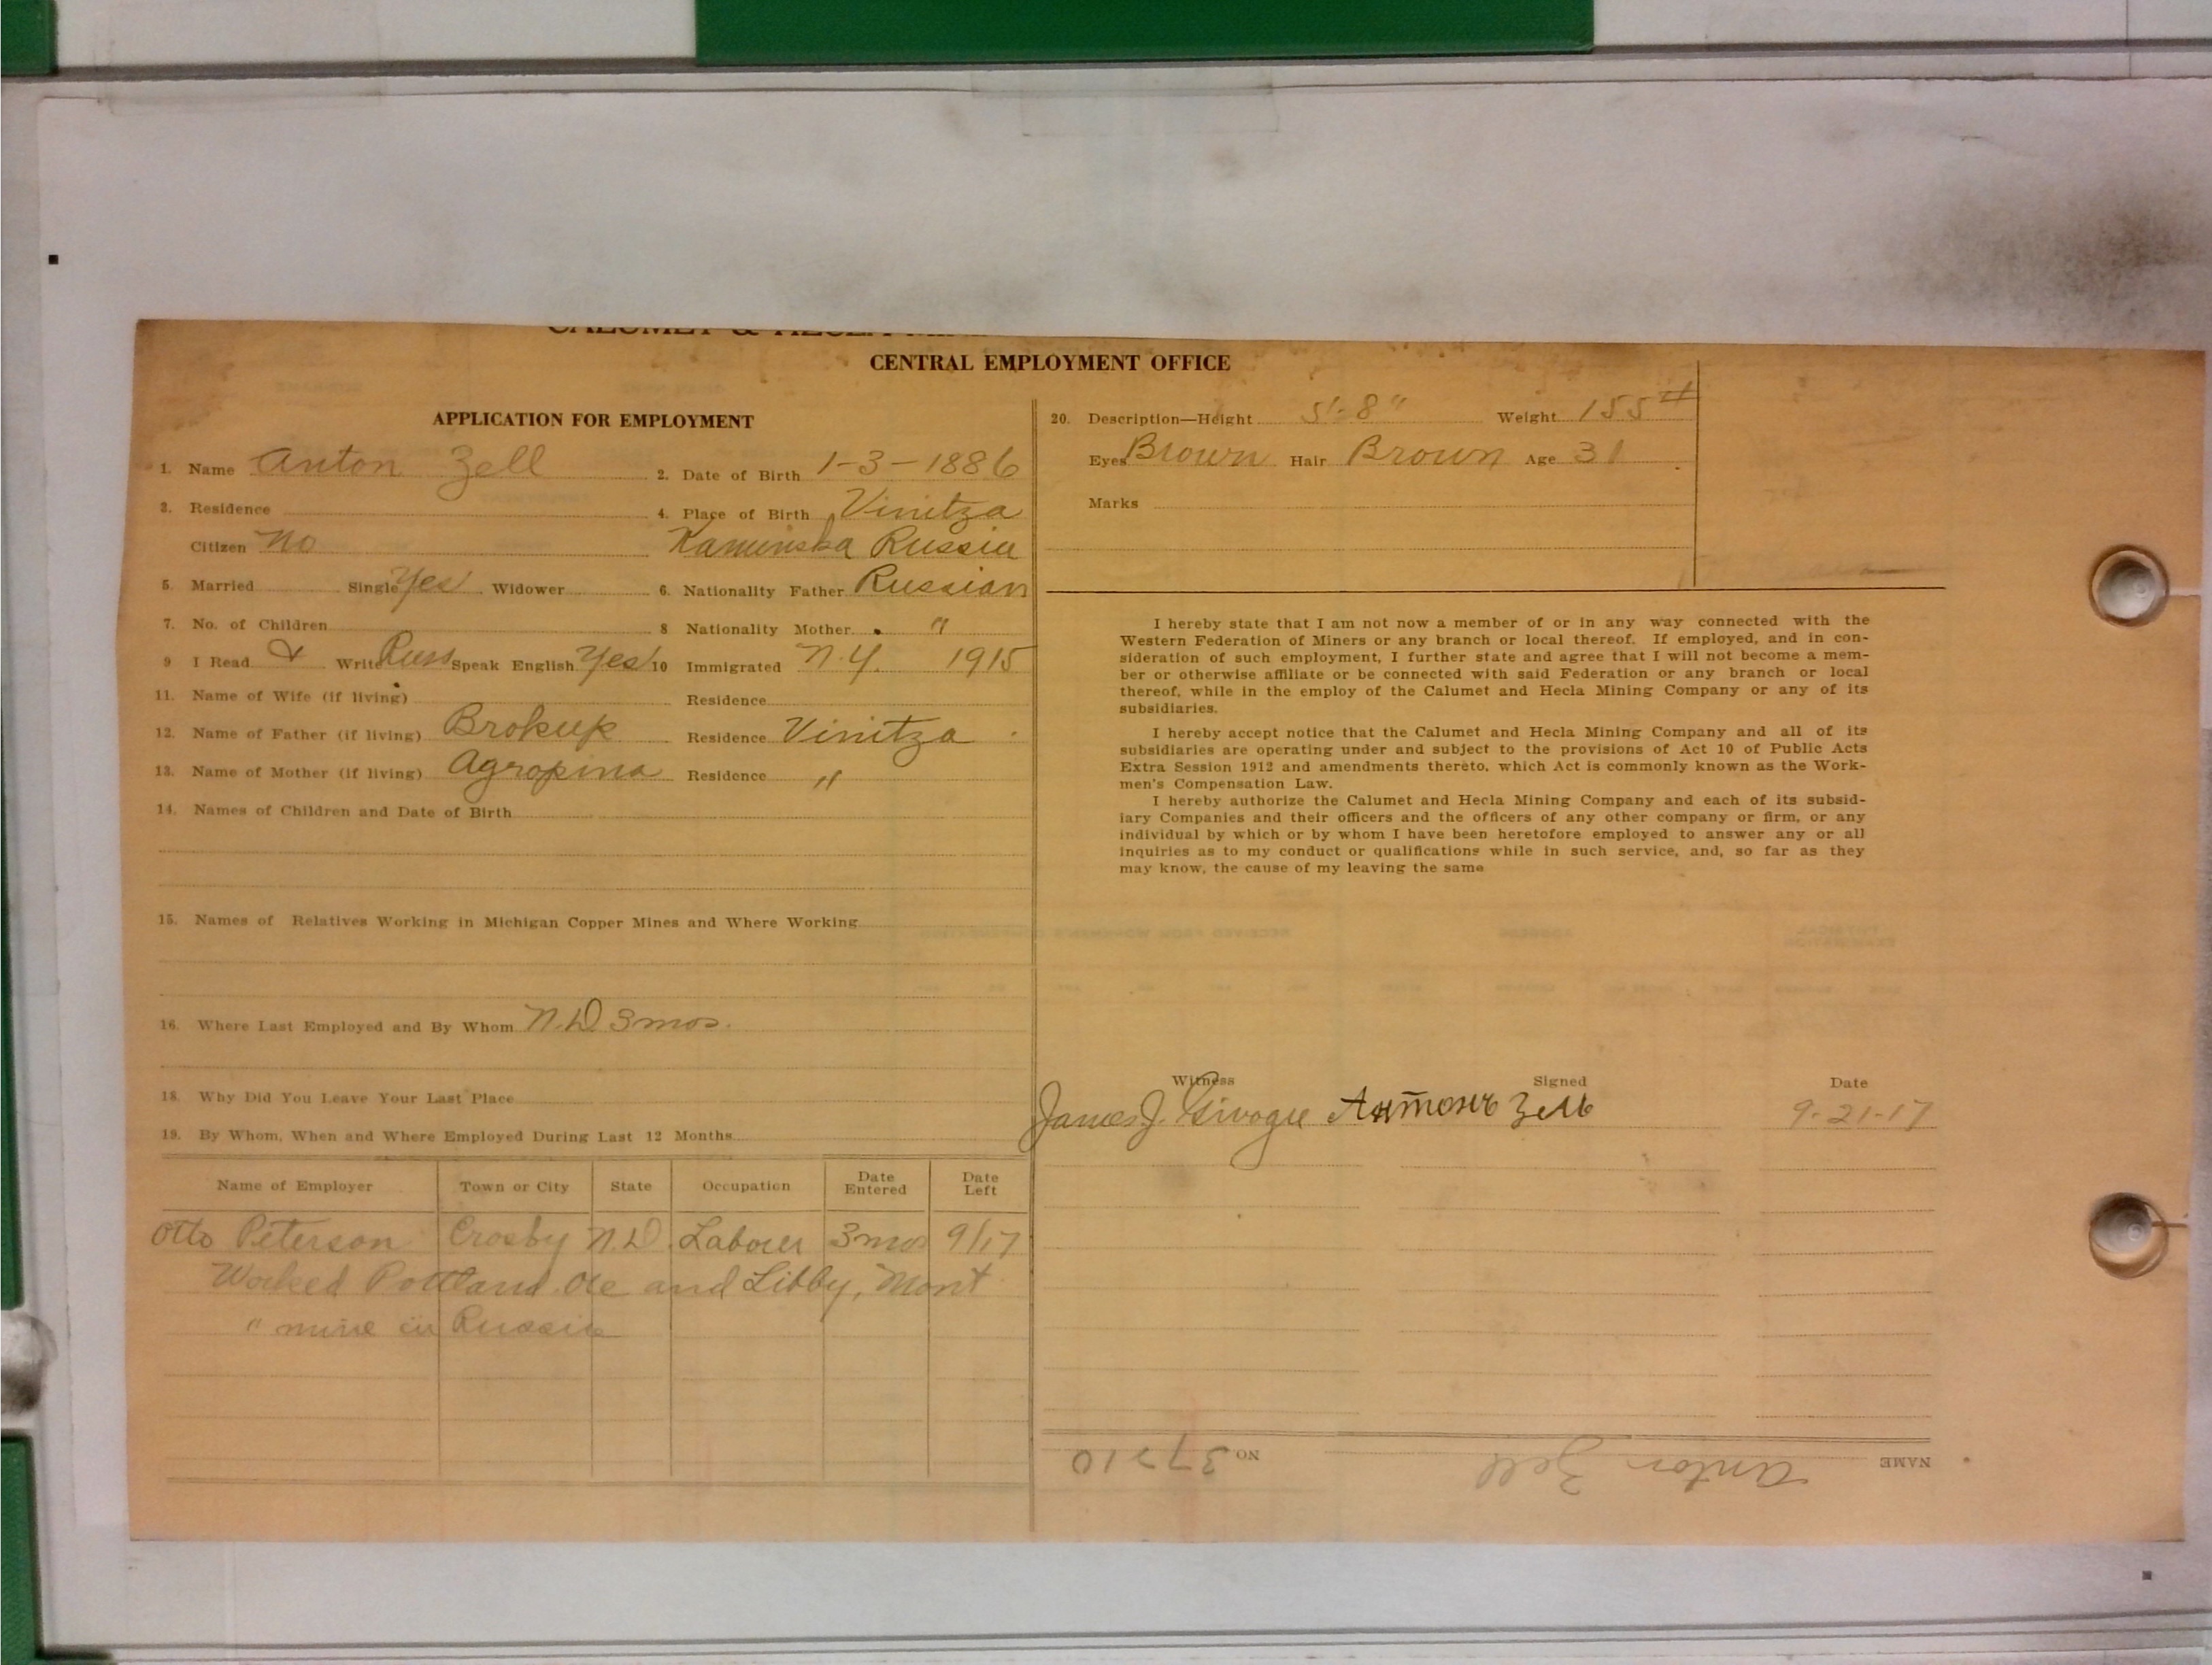 CALUMET & HECLA MI
CENTRAL EMPLOYMENT OFFICE
APPLICATION FOR EMPLOYMENT
1. Name Anton Zell 2. Date of Birth 1-3-1886
3. Residence 4. Place of Birth Vinitza
Citizen No Kaminska Russia
5. Married Single Yes Widower 6. Nationality Father Russian
7. No. of Children 8 Nationality Mother "
9 I Read & Write Russ Speak English Yes 10 Immigrated N.Y. 1915
11. Name of Wife (if living) Residence
12. Name of Father (if living) Brokup Residence Vinitza
13. Name of Mother (if living) Agropina Residence "
14. Names of Children and Date of Birth
15. Names of Relatives Working in Michigan Copper Mines and Where Working
16. Where Last Employed and By Whom N.D. 3 mos.
18. Why Did You Leave Your Last Place
19. By Whom, When and Where Employed During Last 12 Months
Name of Employer Town or City State Occupation Date Entered Date Left
Otto Peterson Crosby N.D. Laborer 3 mos 9/17
Worked Portland Ore and Libby, Mont
" mine in Russia
20. Description—Height 5'-8" Weight 155#
Eyes Brown Hair Brown Age 31
Marks
I hereby state that I am not now a member of or in any way connected with the
Western Federation of Miners or any branch or local thereof. If employed, and in con-
sideration of such employment, I further state and agree that I will not become a mem-
ber or otherwise affiliate or be connected with said Federation or any branch or local
thereof, while in the employ of the Calumet and Hecla Mining Company or any of its
subsidiaries.
I hereby accept notice that the Calumet and Hecla Mining Company and all of its
subsidiaries are operating under and subject to the provisions of Act 10 of Public Acts
Extra Session 1912 and amendments thereto, which Act is commonly known as the Work-
men's Compensation Law.
I hereby authorize the Calumet and Hecla Mining Company and each of its subsid-
iary Companies and their officers and the officers of any other company or firm, or any
individual by which or by whom I have been heretofore employed to answer any or all
inquiries as to my conduct or qualifications while in such service, and, so far as they
may know, the cause of my leaving the same
Witness Signed Date
James J. Антонъ Зель 9-21-17
NAME Anton Zell NO 37710